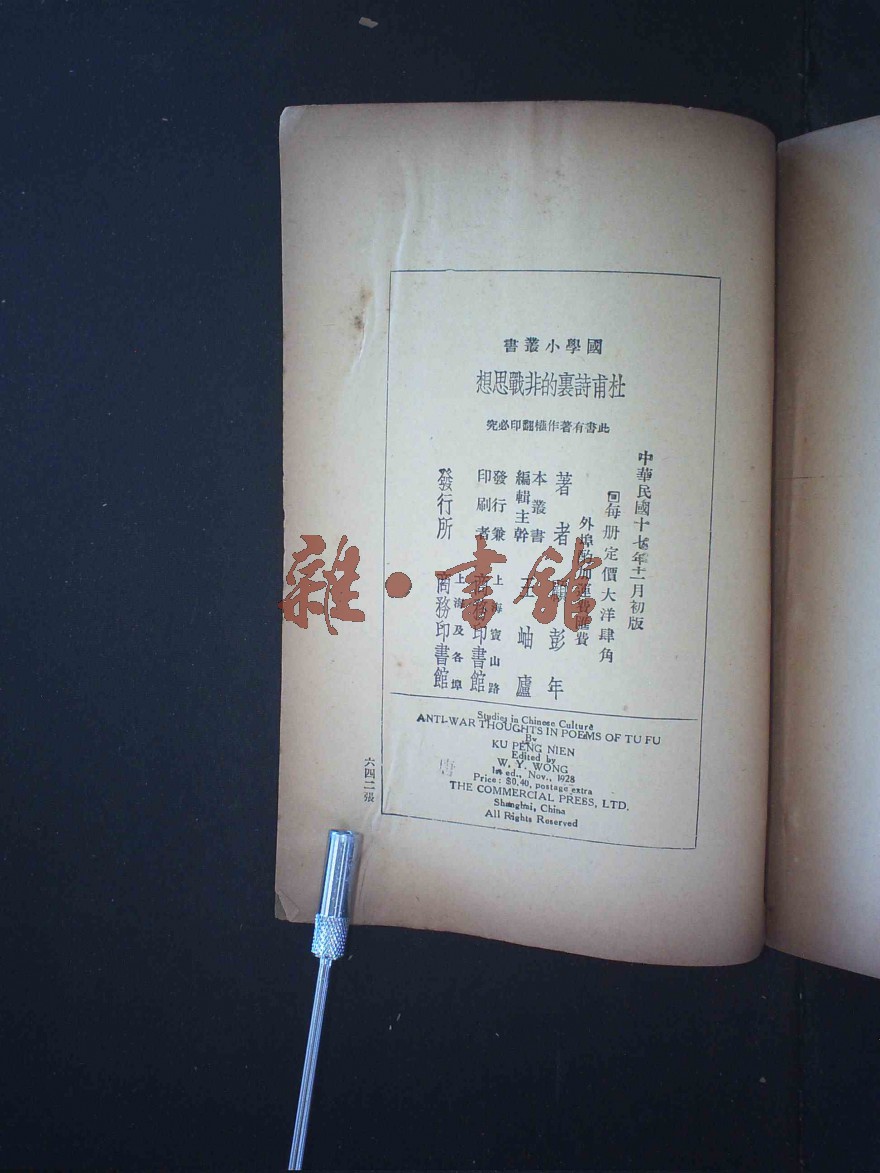 國學小叢書
杜甫詩裏的非戰思想
此書有著作權翻印必究
中華民國十七年十一月初版
回每册定價大洋肆角
外埠酌加運費匯費
著者 顧彭年
本叢書編輯主幹 王岫廬
發行兼印刷者 上海寶山路 商務印書館
發行所 上海及各埠 商務印書館
Studies in Chinese Culture
ANTI-WAR THOUGHTS IN POEMS OF TU FU
By
KU PENG NIEN
Edited by
W. Y. WONG
1st ed., Nov., 1928
Price: $0.40, postage extra
THE COMMERCIAL PRESS, LTD.
Shanghai, China
All Rights Reserved
六四二張
雜·書館